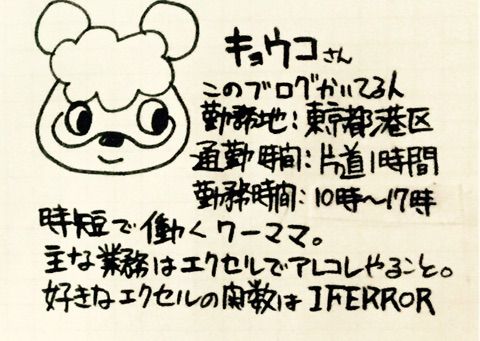 キョウコさん
このブログかいてる人
勤務地：東京都港区
通勤時間：片道1時間
勤務時間：10時～17時
時短で働くワーママ。
主な業務はエクセルでアレコレやること。
好きなエクセルの関数はIFERROR